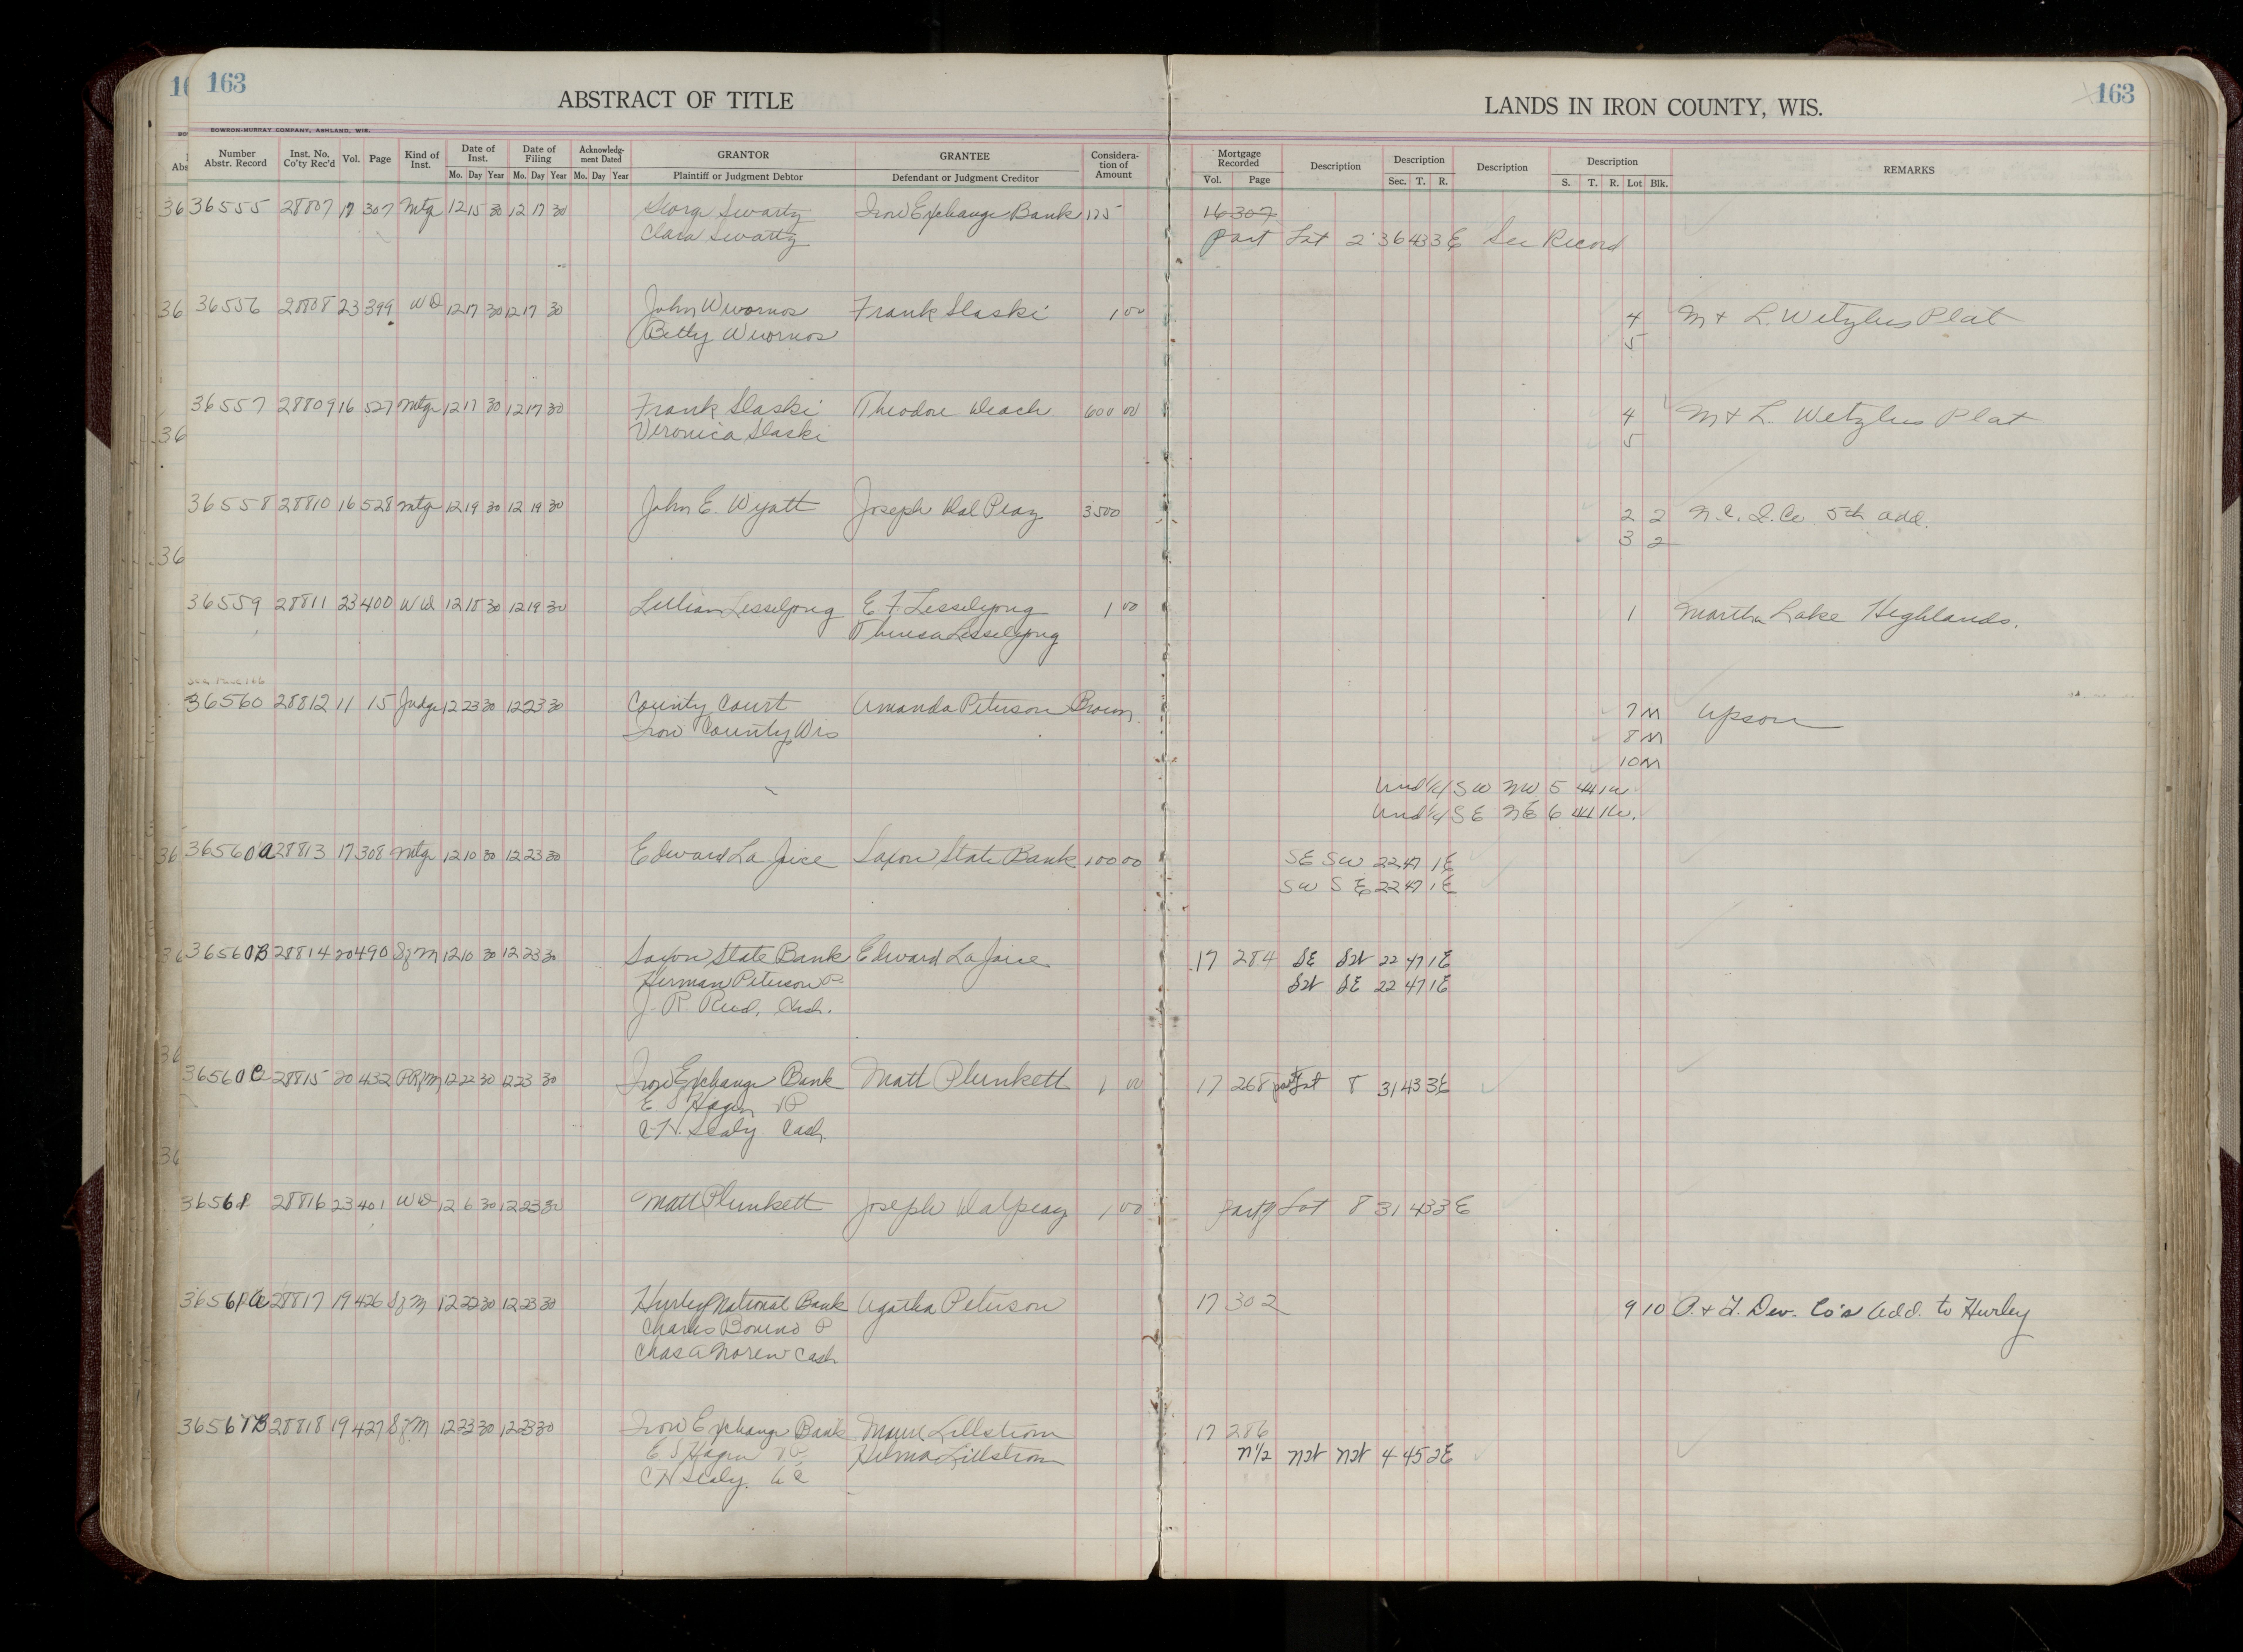 163
ABSTRACT OF TITLE
LANDS IN IRON COUNTY, WIS.
163
BOWRON-MURRAY COMPANY, ASHLAND, WIS.
Number Abstr. Record Inst. No. Co'ty Rec'd Vol. Page Kind of Inst. Date of Inst. Date of Filing Acknowledg-ment Dated GRANTOR GRANTEE Considera-tion of Amount Mortgage Recorded Description Description Description Description REMARKS
Mo. Day Year Mo. Day Year Mo. Day Year Plaintiff or Judgment Debtor Defendant or Judgment Creditor Vol. Page Sec. T. R. S. T. R. Lot Blk.
36555 28807 17 307 Mtg 12 15 30 12 17 30 George Swartz Iron Exchange Bank 175 16 307
Clara Swartz part Lot 2 36 43 3E See Record
36556 28808 23 399 WD 12 17 30 12 17 30 John Wuornos Frank Slaski 1 00 4 M & L. Wetzlers Plat
Betty Wuornos 5
36557 28809 16 527 Mtg 12 17 30 12 17 30 Frank Slaski Theodore 600 00 4 M & L. Wetzlers Plat
Veronica Slaski 5
36558 28810 16 528 Mtg 12 19 30 12 19 30 John E. Wyatt Joseph Dal Peaz 3500 2 2 5th add.
3 2
36559 28811 23 400 WD 12 18 30 12 19 30 Lillian Lesselyong E F Lesselyong 1 00 1 Martha Lake Highlands.
Theresa Lesselyong
36560 28812 11 15 Judge 12 23 30 12 23 30 County Court Amanda Peterson Brown 7 M Upson
Iron County, Wis 8 M
10 M
Und 1/4 SW NW 5 44 1W
Und 1/4 SE NE 6 44 1W.
36560A 28813 17 308 Mtg 12 10 30 12 23 30 Edward La Joice Saxon State Bank 100 00 SE SW 22 47 1E
SW SE 22 47 1E
36560B 28814 20 490 Sfm 12 10 30 12 23 30 Saxon State Bank Edward La Joice 17 284 SE SW 22 47 1E
Herman Peterson P. SW SE 22 47 1E
J. R. Reed, Cash.
36560C 28815 20 432 PRfm 12 22 30 12 23 30 Iron Exchange Bank Matt Plunkett 1 00 17 268 part Lot 8 31 43 3E
E S Hagen VP
C.H. Sealy Cash.
36561 28816 23 401 WD 12 6 30 12 23 30 Matt Plunkett Joseph Dalpeaz 1 00 Part of Lot 8 31 43 3E
36561A 28817 19 426 Sfm 12 22 30 12 23 30 Hurley National Bank Agatha Peterson 17 302 9 10 D. & I. Dev. Co's Add. to Hurley
Charles Bonino P
Chas A Noren Cash
36561B 28818 19 427 Sfm 12 23 30 12 23 30 Iron Exchange Bank Lillstrom 17 286
E S Hagen VP Hilma Lillstrom N1/2 NW NW 4 45 2E
C H Sealy